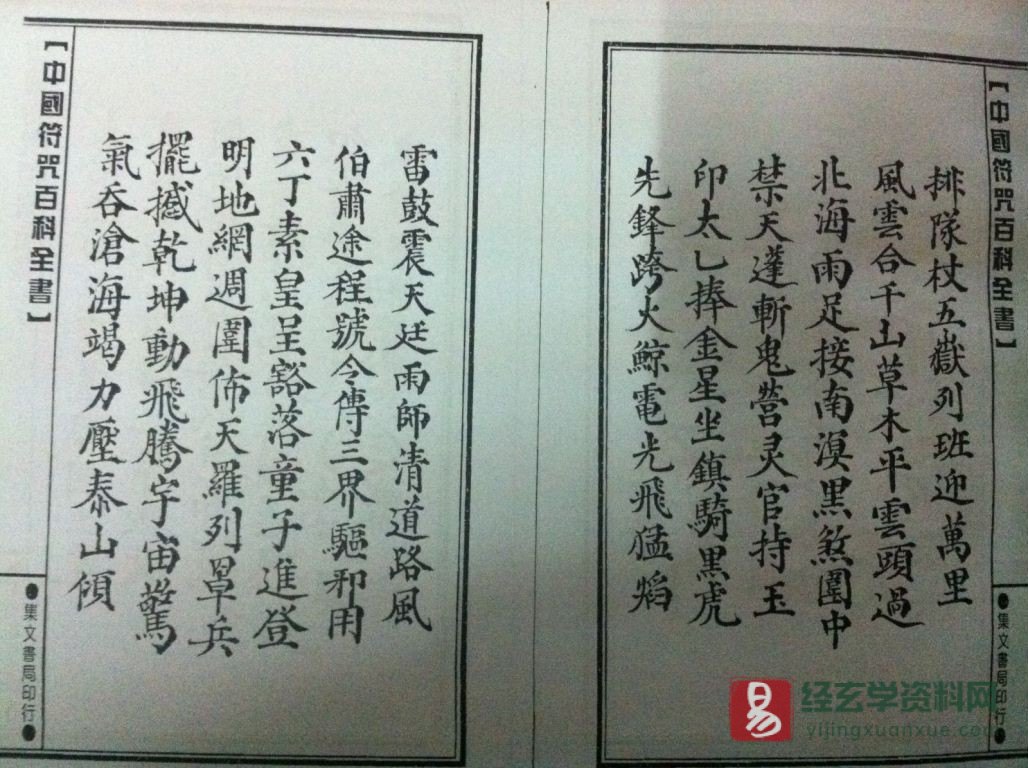 【中國符咒百科全書】
排隊杖五嶽列班迎萬里
風雲合千山草木平雲頭過
北海雨足接南溟黑煞圍中
禁天蓬斬鬼營灵官持玉
印太乙捧金星坐鎮騎黑虎
先鋒跨火鯨電光飛猛焰
●集文書局印行●
雷鼓震天廷雨師清道路風
伯肅途程號令傳三界驅邪用
六丁素皇呈豁落童子進登
明地網週圍佈天羅列罩兵
擺撼乾坤動飛騰宇宙驚
氣吞滄海竭力壓泰山傾
【中國符咒百科全書】
●集文書局印行●
易
经玄学资料网
yijingxuanxue.com